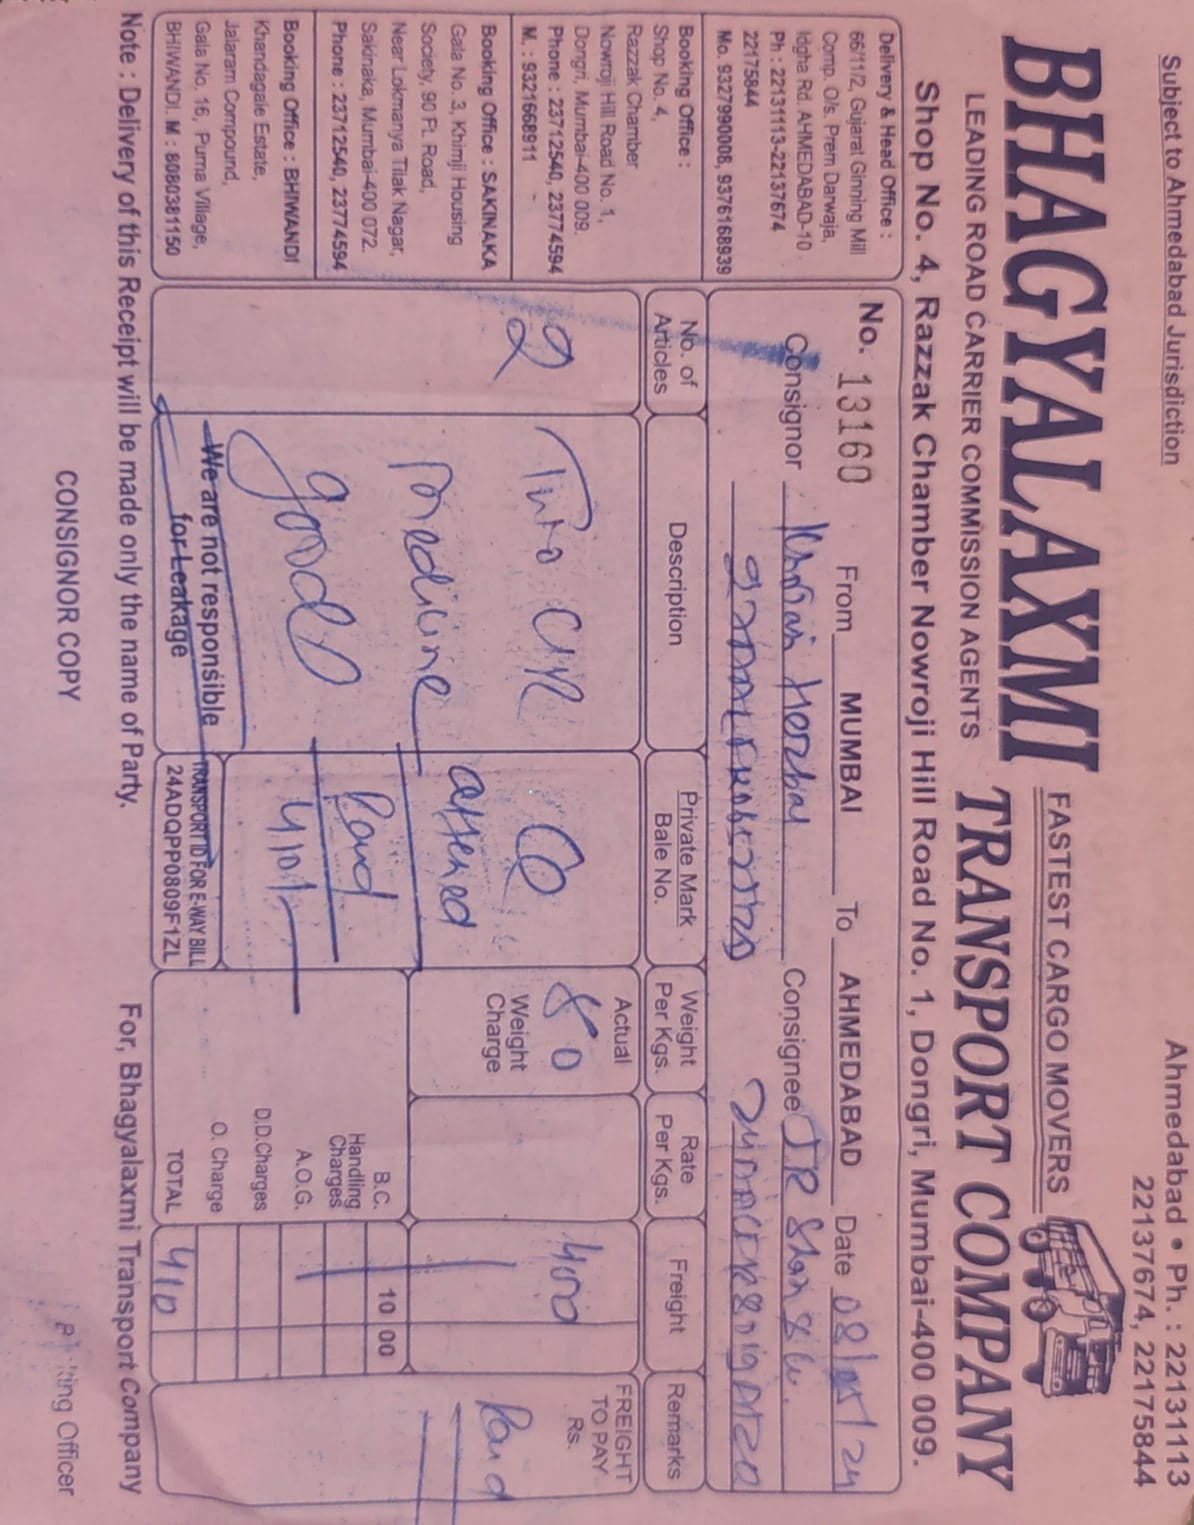 Subject to Ahmedabad Jurisdiction
Ahmedabad • Ph. : 22131113
22137674, 22175844
BHAGYALAXMI TRANSPORT COMPANY
FASTEST CARGO MOVERS
LEADING ROAD CARRIER COMMISSION AGENTS
Shop No. 4, Razzak Chamber Nowroji Hill Road No. 1, Dongri, Mumbai-400 009.
Delivery & Head Office :
66/11/2, Gujarat Ginning Mill
Comp. O/s. Prem Darwaja,
Idgha Rd. AHMEDABAD-10
Ph : 22131113-22137674
22175844
Mo. 9327990008, 9376168939
Booking Office :
Shop No. 4,
Razzak Chamber
Nowroji Hill Road No. 1,
Dongri, Mumbai-400 009.
Phone : 23712540, 23774594
M. : 9321668911
Booking Office : SAKINAKA
Gala No. 3, Khimji Housing
Society, 90 Ft. Road,
Near Lokmanya Tilak Nagar,
Sakinaka, Mumbai-400 072.
Phone : 23712540, 23774594
Booking Office : BHIWANDI
Khandagale Estate,
Jalaram Compound,
Gala No. 16, Purna Village,
BHIWANDI. M : 8080381150
No. 13160 From MUMBAI To AHMEDABAD Date 08/05/24
Consignor Herbal Consignee
No. of Articles
Description
Private Mark
Bale No.
Weight Per Kgs.
Rate Per Kgs.
Freight
Remarks
2
Two
Medicine
good
Paid
410/-
Actual
80
Weight Charge
400
FREIGHT TO PAY Rs.
Paid
B.C. 10 00
Handling Charges
A.O.G.
D.D.Charges
O. Charge
TOTAL 410
We are not responsible
for Leakage
TRANSPORT ID FOR E-WAY BILL
24ADQPP0809F1ZL
Note : Delivery of this Receipt will be made only the name of Party.
For, Bhagyalaxmi Transport Company
CONSIGNOR COPY
Officer